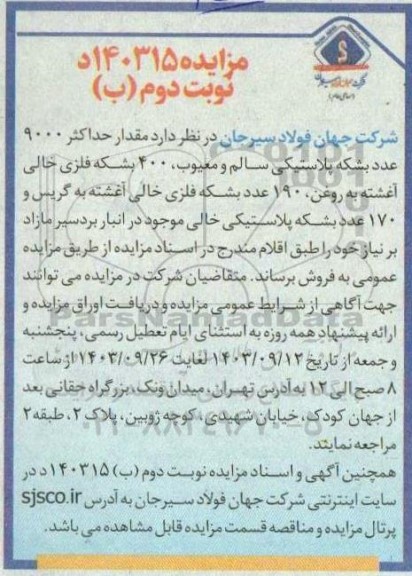 مزایده ۱۴۰۳۱۵د
نوبت دوم (ب)
شرکت جهان فولاد سیرجان در نظر دارد مقدار حداکثر ۹۰۰۰
عدد بشکه پلاستیکی سالم و معیوب، ۴۰۰ بشکه فلزی خالی
آغشته به روغن، ۱۹۰ عدد بشکه فلزی خالی آغشته به گریس و
۱۷۰ عدد بشکه پلاستیکی خالی موجود در انبار بردسیر مازاد
بر نیاز خود را طبق اقلام مندرج در اسناد مزایده از طریق مزایده
عمومی به فروش برساند. متقاضیان شرکت در مزایده می توانند
جهت آگاهی از شرایط عمومی مزایده و دریافت اوراق مزایده و
ارائه پیشنهاد همه روزه به استثنای ایام تعطیل رسمی، پنجشنبه
و جمعه از تاریخ ۱۴۰۳/۰۹/۱۲ لغایت ۱۴۰۳/۰۹/۲۶ از ساعت
۸ صبح الی ۱۲ به آدرس تهران، میدان ونک، بزرگراه حقانی بعد
از جهان کودک، خیابان شهیدی، کوچه ژوبین، پلاک ۲، طبقه ۲
مراجعه نمایند.
همچنین آگهی و اسناد مزایده نوبت دوم (ب) ۱۴۰۳۱۵د در
سایت اینترنتی شرکت جهان فولاد سیرجان به آدرس sjsco.ir
پرتال مزایده و مناقصه قسمت مزایده قابل مشاهده می باشد.
ParsNamadData